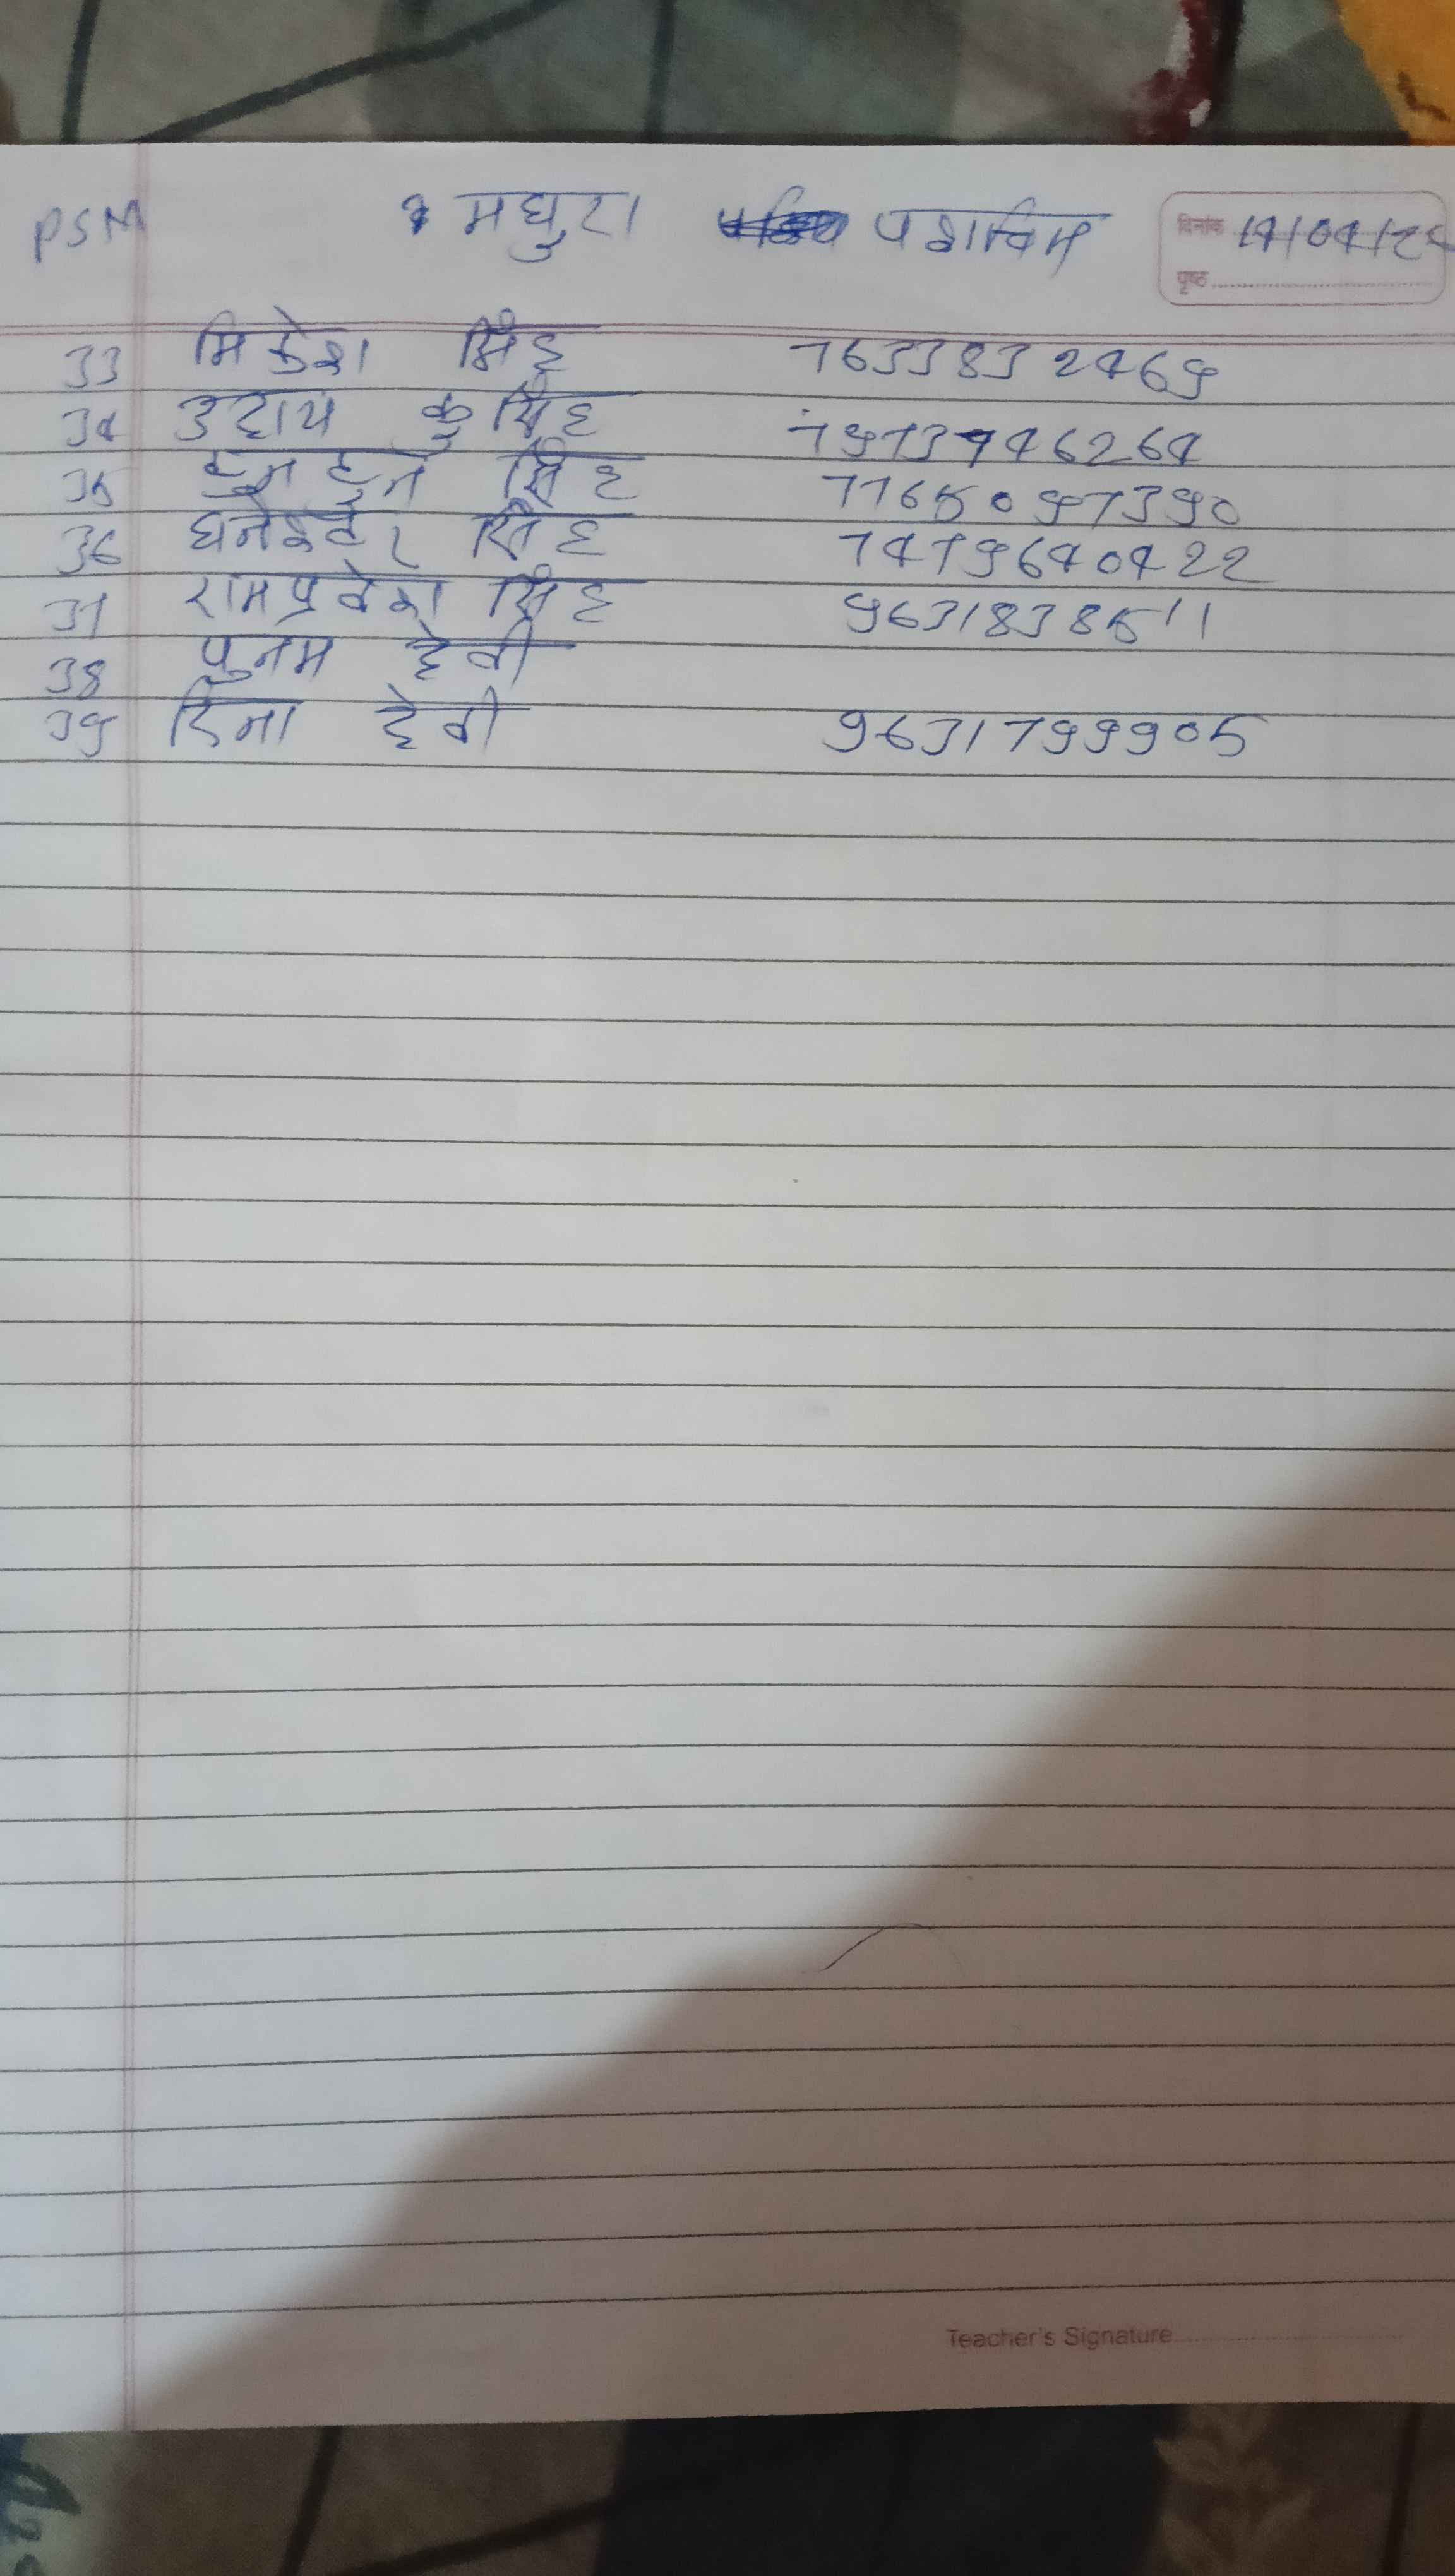 PSM मधुरा पशचिम दिनांक 14/04/2
पृष्ठ
33 मिकेश सिंह 7633832469
34 उदाय कु सिंह 7973746264
35 टुनटुन सिंह 7765097390
36 धनेश्वर सिंह 7479640422
37 रामप्रवेश सिंह 9631838511
38 पुनम देवी
39 रिना देवी 9631799905
Teacher's Signature